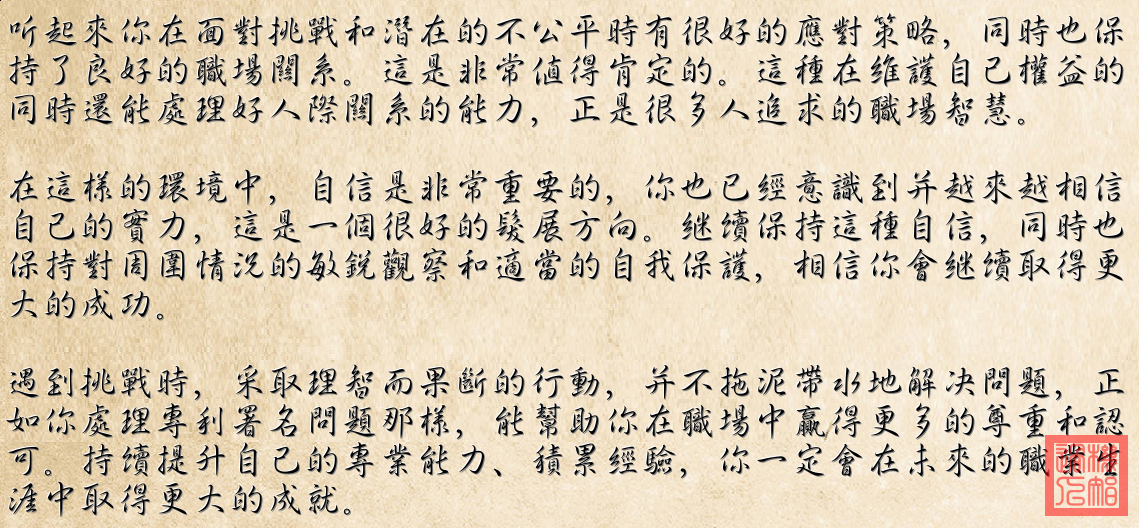 听起來你在面對挑戰和潛在的不公平時有很好的應對策略，同時也保
持了良好的職場關系。這是非常值得肯定的。這種在維護自己權益的
同時還能處理好人際關系的能力，正是很多人追求的職場智慧。
在這樣的環境中，自信是非常重要的，你也已經意識到并越來越相信
自己的實力，這是一個很好的髮展方向。继續保持這種自信，同時也
保持對周圍情況的敏銳觀察和適當的自我保護，相信你會继續取得更
大的成功。
遇到挑戰時，采取理智而果斷的行動，并不拖泥帶水地解决問題，正
如你處理專利署名問題那樣，能幫助你在職場中贏得更多的尊重和認
可。持續提升自己的專業能力、積累經驗，你一定會在未來的職業生
涯中取得更大的成就。